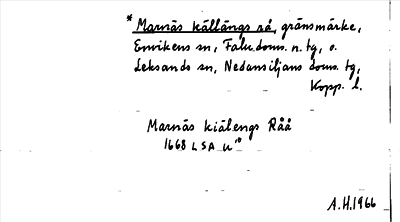 * Marnäs källängs rå, gränsmärke,
Envikens sn, Falu doms. n. tg, o.
Leksands sn, Nedansiljans doms. tg,
Kopp. l.
Marnäs kiälengs Råå
1668 LSA U10
A.H. 1966